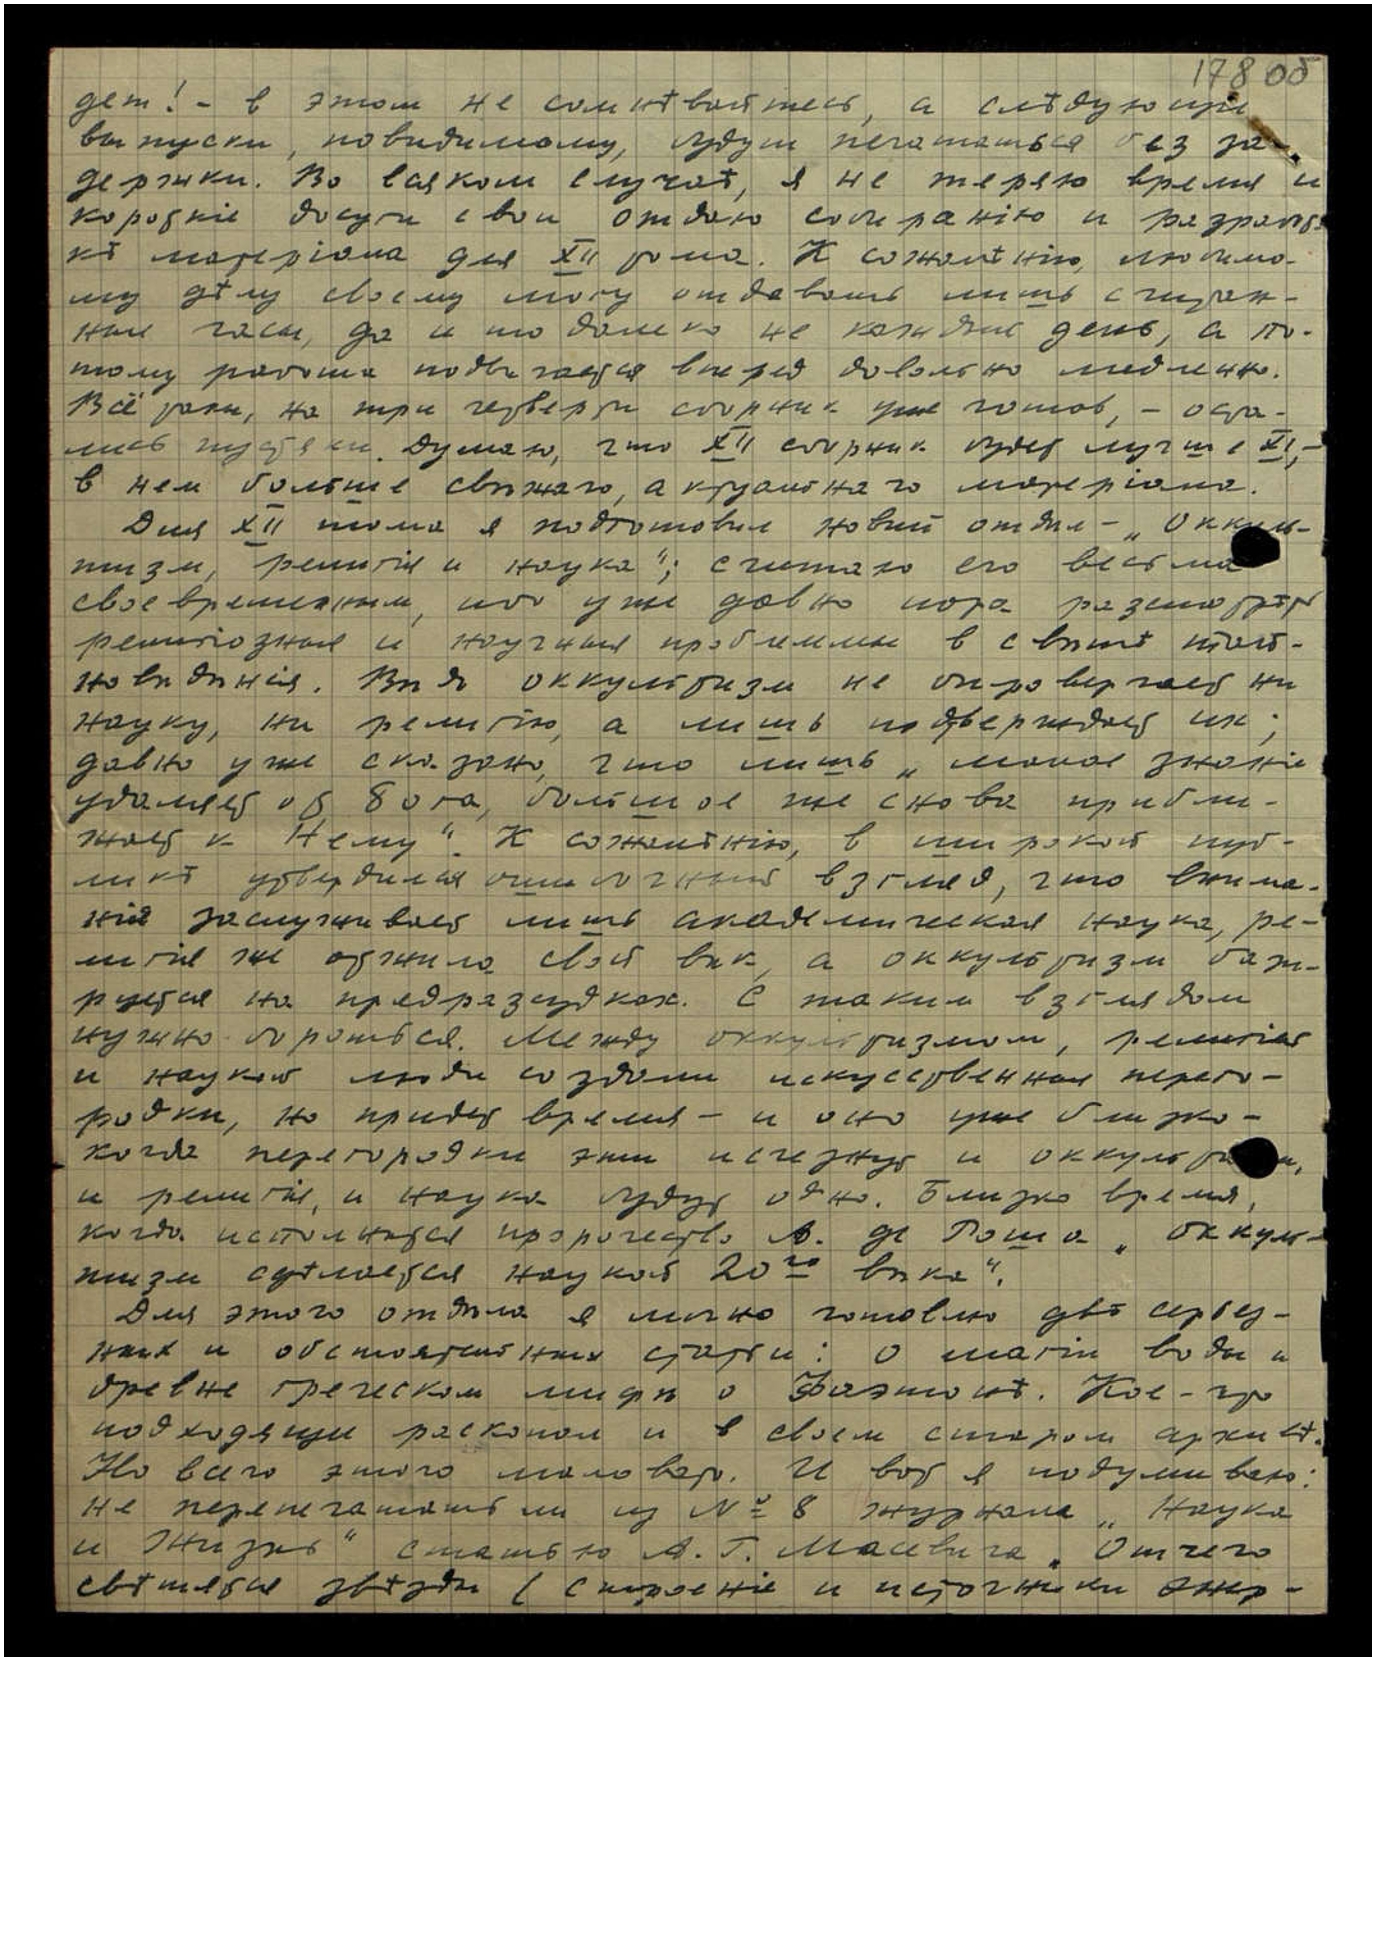 178 об
дет! - в этом не сомнѣвайтесь, а слѣдующiе
выпуски, повидимому, будут печататься без за-
держки. Во всяком случаѣ, я не теряю время и
короткiе досуги свои отдаю собиранiю и разработ-
кѣ матерiала для XII тома. К сожалѣнiю, любимо-
му дѣлу своему могу отдавать лишь считан-
ные часы, да и то далеко не каждый день, а по-
тому работа подвигается вперед довольно медленно.
Всё таки, на три четверти сборник уже готов, - оста-
лись пустяки. Думаю, что XII сборник будет лучше XI, -
в нем больше свѣжаго, актуальнаго матерiала.
Для XII тома я подготовил новый отдѣл - „Оккуль-
тизм, религiя и наука"; считаю его весьма
своевременным, ибо уже давно пора разсмотрѣть
религiозныя и научныя проблеммы в свѣтѣ тай-
новѣдѣнiя. Вѣдь оккультизм не опровергает ни
науку, ни религiю, а лишь подтверждает их;
давно уже сказано, что лишь „малое знанiе
удаляет от Бога, большое же снова прибли-
жает к Нему". К сожалѣнiю, в широкой пуб-
ликѣ утвердился ошибочный взгляд, что внима-
нiя заслуживает лишь академическая наука, ре-
лигiя же отжила свой вѣк, а оккультизм бази-
руется на предразсудках. С таким взглядом
нужно бороться. Между оккультизмом, религiей
и наукой люди создали искусственныя перего-
родки, но придет время - и оно уже близко -
когда перегородки эти исчезнут и оккультизм,
и религiя, и наука будут одно. Близко время,
когда исполнится пророчество А. де Роша „Оккуль-
тизм сдѣлается наукой 20го вѣка".
Для этого отдѣла я лично готовлю двѣ серьез-
ных и обстоятельных статьи: о магiи воды и
древне греческом мифѣ о Фаэтонѣ. Кое-что
подходящее раскопал и в своем старом архивѣ.
Но всего этого маловато. И вот я подумываю:
не перепечатать ли из № 8 журнала „Наука
и Жизнь" статью А. Г. Масевича „Отчего
свѣтятся звѣзды (Строенiе и источники энер-